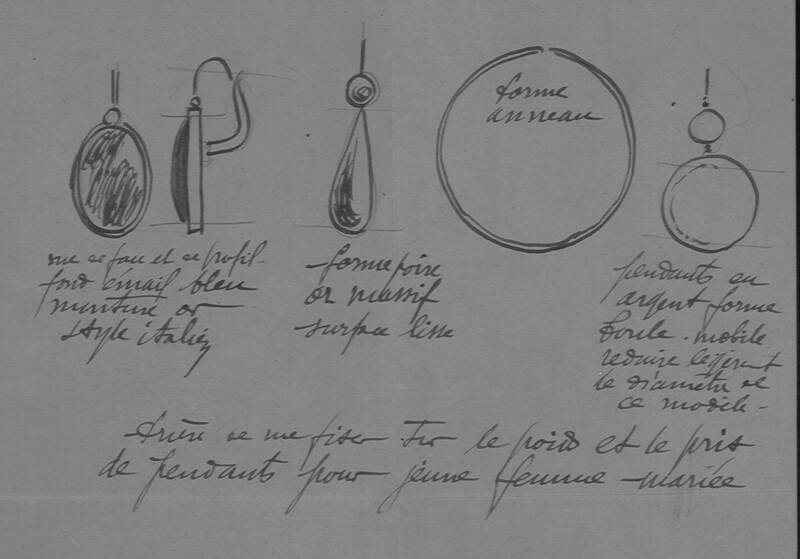 forme
anneau
vue de face et de profil
fond émail bleu
monture or
style italien
forme poire
or massif
surface lisse
pendants en
argent forme
boule . mobile
reduire legerement
le diamètre de
ce modèle -
Prière de me fixer sur le poids et le prix
de pendants pour jeune femme mariée